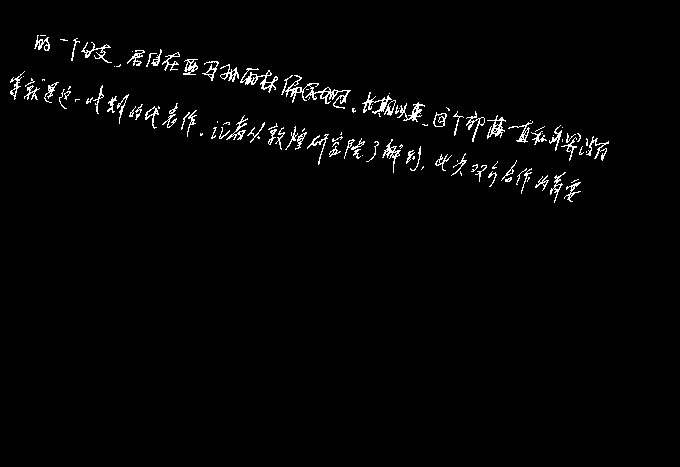 的一个分支，居住在亚马孙雨林偏远地区。长期以来，这个部落一直和外界没有
等就是这一时期的代表作。记者从敦煌研究院了解到，此次双方合作的首要